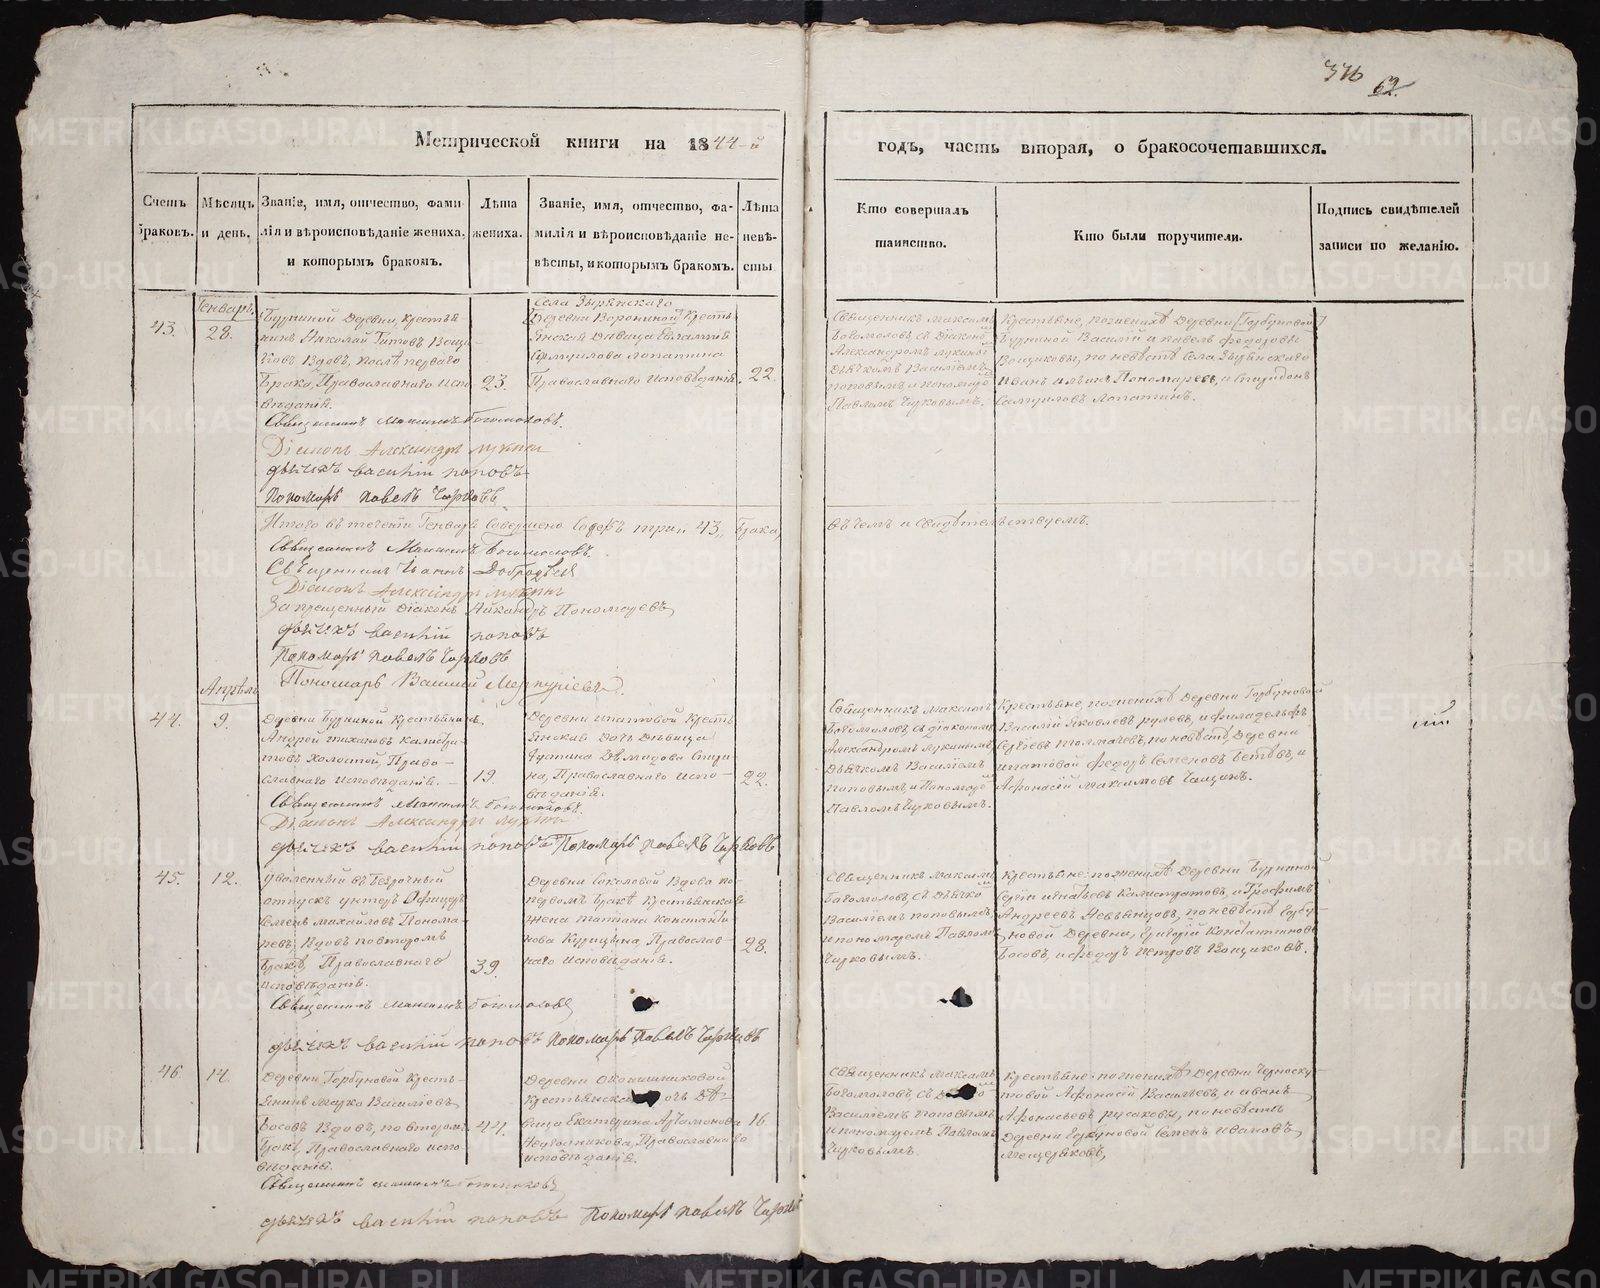 376
62.
Метрической книги на 1844-й
годъ, часть вторая, о бракосочетавшихся.
Счетъ браковъ.
Мѣсяцъ и день.
Званіе, имя, отчество, фами-
лія и вѣроисповѣданіе жениха,
и которымъ бракомъ.
Лѣта
жениха.
Званіе, имя, отчество, фа-
милія и вѣроисповѣданіе не-
вѣсты, и которымъ бракомъ.
Лѣта
невѣ-
сты
Кто совершалъ
таинство.
Кто были поручители.
Подпись свидѣтелей
записи по желанію.
Генварь
43.
28.
Бурниной Деревни, Крестья
нинъ Николай Титовъ
Вдовъ, послѣ перваго
Брака, Православнаго Испо
вѣданія.
23.
села Зырянскаго
Деревни Ворониной Кресть
янская Дѣвица Евлампія
Самуилова Лопатина
Православнаго Исповѣданія.
22
Священникъ Максимъ
Богомоловъ съ Діакономъ
Александромъ Лукинымъ
Дьячкомъ Василіемъ
Поповымъ и Пономаремъ
Павломъ Чирковымъ.
Крестьяне, по женихѣ Деревни Горбуновой
Бурниной Василій и Павелъ Федоровы
Вощиковы, по невѣстѣ села Зырянскаго
Иванъ Пономаревъ, и Спиридонъ
Самуиловъ Лопатинъ.
Священникъ Максимъ Богомоловъ.
Діаконъ Александръ Лукинъ
дьячекъ василій поповъ
Пономарь павелъ Чирковъ
Итого въ теченіи Генваря Совершено Сорокъ три „43„ Брака,
въ чемъ и свидѣтельствуемъ.
Священникъ Максимъ Богомоловъ.
Священникъ Іоаннъ
Діаконъ Александръ Лукинъ
Запрещенный Діаконъ Пономаревъ
дьячекъ василій поповъ
Пономарь павелъ Чирковъ
Пономарь Василій Меркурьевъ.
Апрѣль
44.
9.
Деревни Бурниной Крестьянинъ,
Андрей Тихановъ Калистра-
товъ Холостой, Право-
славнаго Исповѣданія.
19.
Деревни Ипатовой Кресть
янская Дочь Дѣвица
Устина Демидова
на, Православнаго Испо-
вѣданія.
22.
Священникъ Максимъ
Богомоловъ, съ Діакономъ
Александромъ Лукинымъ
Дьячкомъ Василіемъ
Поповымъ и Пономаремъ
Павломъ Чирковымъ.
Крестьяне, по женихѣ Деревни Горбуновой
Василій Яковлевъ Рулевъ, и Филадельфъ
Сергѣевъ Толмачевъ, по невѣстѣ, Деревни
Ипатовой Федоръ Семеновъ и
Афонасій Максимовъ
Священникъ Максимъ Богомоловъ.
Діаконъ Александръ Лукинъ
дьячекъ василій поповъ Пономарь павелъ Чирковъ
45.
12.
Уволенный въ безсрочный
отпускъ унтеръ Офицеръ
Семенъ Михайловъ Понома-
ревъ, Вдовъ по второмъ
Бракѣ, Православнаго
исповѣданія.
39.
Деревни Соколовой Вдова по
первомъ Бракѣ Крестьянская
жена Татіана Константи
нова Курицына, Православ-
наго исповѣданія.
28.
Священникъ Максимъ
Богомоловъ, съ Дьячкомъ
Василіемъ Поповымъ,
и пономаремъ Павломъ
Чирковымъ.
Крестьяне: по женихѣ Деревни Бурниной
Сергій Игнатьевъ Калистратовъ, и Трофимъ
Андреевъ Невьянцовъ, по невѣстѣ Горбу-
новой Деревни, Григорій Константиновъ
Босовъ, и Федоръ Петровъ Вощиковъ.
Священникъ Максимъ Богомоловъ
дьячекъ василій поповъ пономарь Павелъ Чирковъ
46.
14.
Деревни Горбуновой Кресть-
янинъ Марко Василіевъ
Босовъ Вдовъ, по второмъ
Бракѣ, Православнаго испо-
вѣданія.
44.
Деревни Окопишниковой
Крестьянская дочь Дѣ-
вица Екатерина Артамонова
Православнаго
исповѣданія.
16.
Священникъ Максимъ
Богомоловъ съ
Василіемъ Поповымъ
и пономаремъ Павломъ
Чирковымъ.
Крестьяне: по женихѣ Деревни Черноску-
товой Афонасій Васильевъ, и Иванъ
Афонасьевъ Русаковы, по невѣстѣ
Деревни Горбуновой Семенъ Ивановъ
Мещеряковъ,
Священникъ Максимъ Богомоловъ
дьячекъ василій поповъ Пономарь павелъ Чирковъ
METRIKI.GASO-URAL.RU